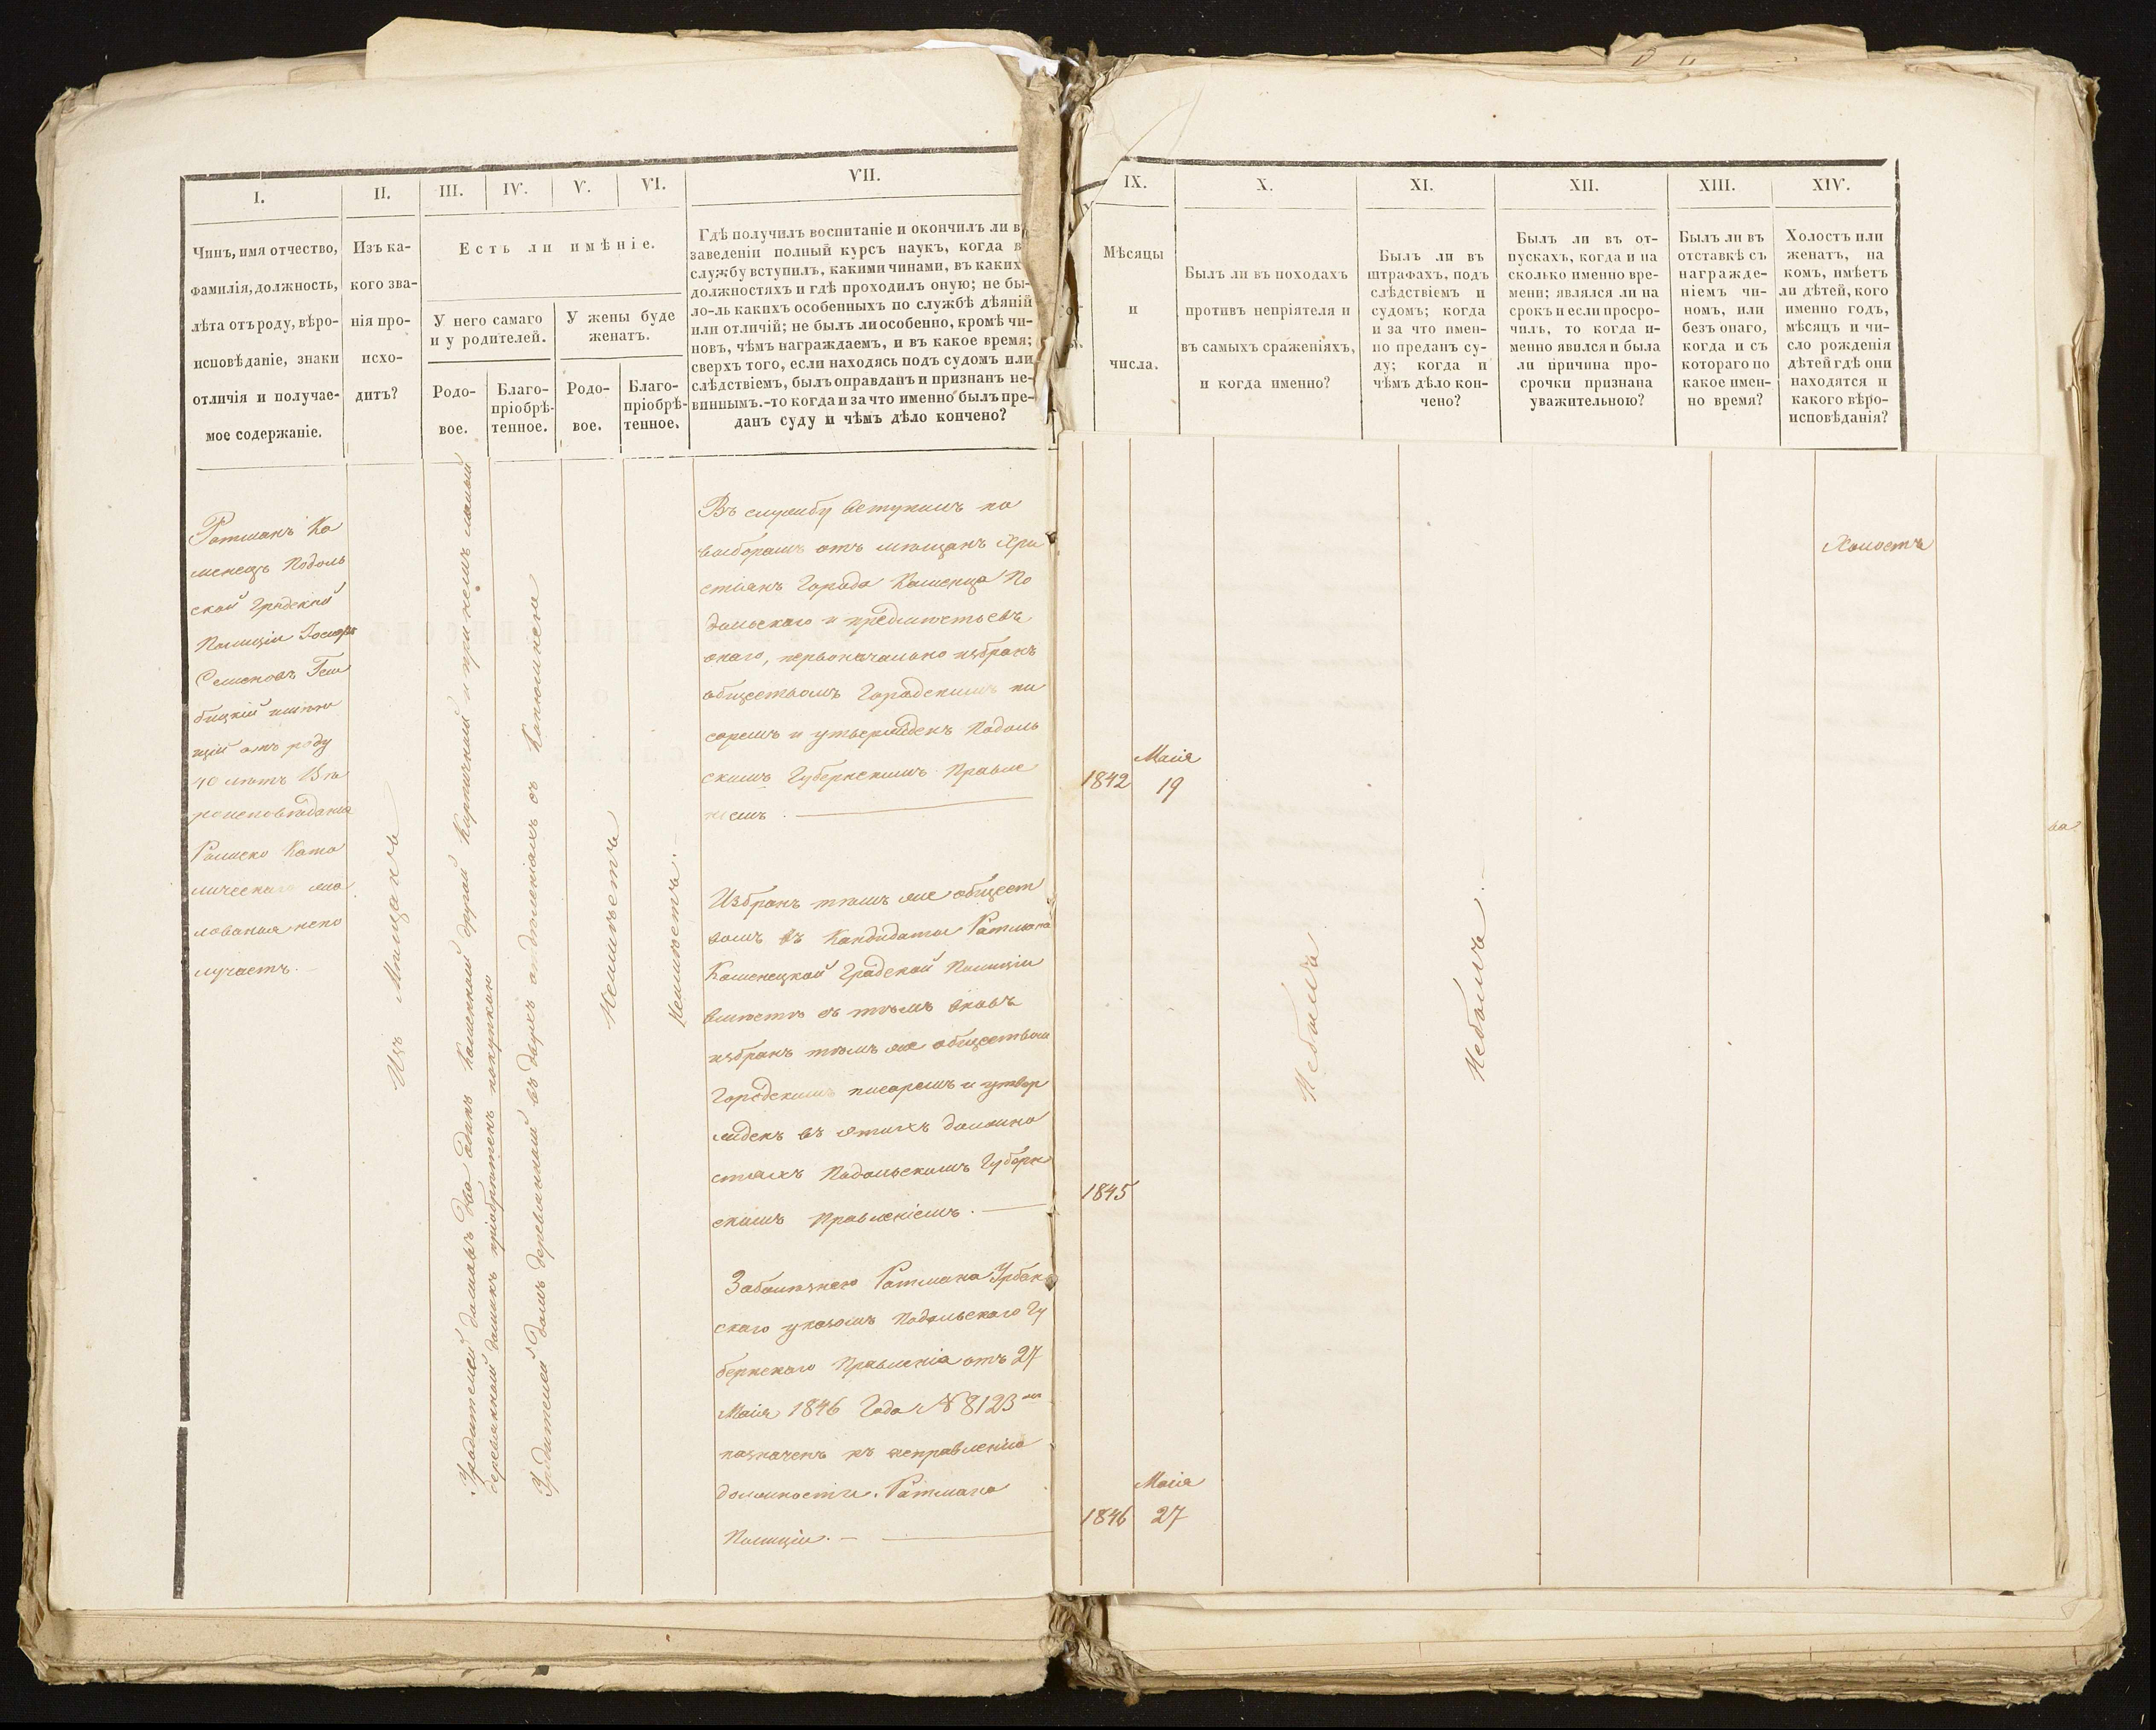 I.
II.
III.
IV.
V.
VI.
VII.
Чинъ, имя отчество,
фамилія, должность,
лѣта отъ роду, вѣро-
исповѣданіе, знаки
отличія и получае-
мое содержаніе.
Изъ ка-
кого зва-
нія про-
исхо-
дитъ?
Есть ли имѣніе.
У него самаго
и у родителей.
У жены буде
женатъ.
Родо-
вое.
Благо-
пріобрѣ-
тенное.
Родо-
вое.
Благо-
пріобрѣ-
тенное.
Гдѣ получилъ воспитаніе и окончилъ ли в
заведеніи полный курсъ наукъ, когда в
службу вступилъ, какими чинами, въ каких
должностяхъ и гдѣ проходилъ оную; не бы-
ло-ль какихъ особенныхъ по службѣ дѣяній
или отличій; не былъ ли особенно, кромѣ чи-
новъ, чѣмъ награждаемъ, и въ какое время;
сверхъ того, если находясь подъ судомъ или
слѣдствіемъ, былъ оправданъ и признанъ не-
виннымъ.-то когда и за что именно былъ пре-
данъ суду и чѣмъ дѣло кончено?
Ратманъ Ка
менецъ Подоль
ской Градской
Полиціи
Семеновъ
имѣю
щій отъ роду
40 лѣтъ Вѣ
роисповѣданія
Римско Като
лическаго жа
лованья непо
лучаетъ. —
Изъ Мѣщанъ
Уродителей домовъ два одинъ каменный другой кирпичный и при немъ малый
деревянной домикъ пріобрѣтенъ покупкою
Уродителей домъ деревянный въ двухъ отдѣленіяхъ съ
Неимѣетъ
Неимѣетъ. —
Въ службу вступилъ по
выборамъ отъ мѣщанъ Хри
стіянъ Города Каменца По
дольскаго и предмѣстьевъ
онаго, первоначально избранъ
обществомъ Городскимъ пи
саремъ и утвержденъ Подоль
скимъ Губернскимъ Правле
ніемъ. —
Избранъ тѣмъ же общест
вомъ въ Кандидаты Ратмана
Каменецкой Градской Полиціи
вмѣстѣ съ тѣмъ вновь
избранъ тѣмъ же обществом
Городскимъ писаремъ и утвер
жденъ въ этихъ должно
стяхъ Подольскимъ Губерн
скимъ Правленіемъ. —
Заболѣзнею Ратмана Урбан
скаго указомъ Подольскаго Гу
бернскаго Правленія отъ 27
Маія 1846 Года № 8123 мъ
назначенъ къ исправленію
должности Ратмана
Полиціи. —
IX.
X.
XI.
XII.
XIII.
XIV.
Мѣсяцы
и
числа.
Былъ ли въ походахъ
противъ непріятеля и
въ самыхъ сраженіяхъ,
и когда именно?
Былъ ли въ
штрафахъ, подъ
слѣдствіемъ и
судомъ; когда
и за что имен-
но преданъ су-
ду; когда и
чѣмъ дѣло кон-
чено?
Былъ ли въ от-
пускахъ, когда и на
сколько именно вре-
мени; являлся ли на
срокъ и если просро-
чилъ, то когда и-
менно явился и была
ли причина про-
срочки признана
уважительною?
Былъ ли въ
отставкѣ съ
награжде-
ніемъ чи-
номъ, или
безъ онаго,
когда и съ
котораго по
какое имен-
но время?
Холостъ или
женатъ, на
комъ, имѣетъ
ли дѣтей, кого
именно годъ,
мѣсяцъ и чи-
сло рожденія
дѣтей гдѣ они
находятся и
какого вѣро-
исповѣданія?
Маія
1842 19
1845
Маія
1846 27
Небылъ
Небылъ. —
Холостъ